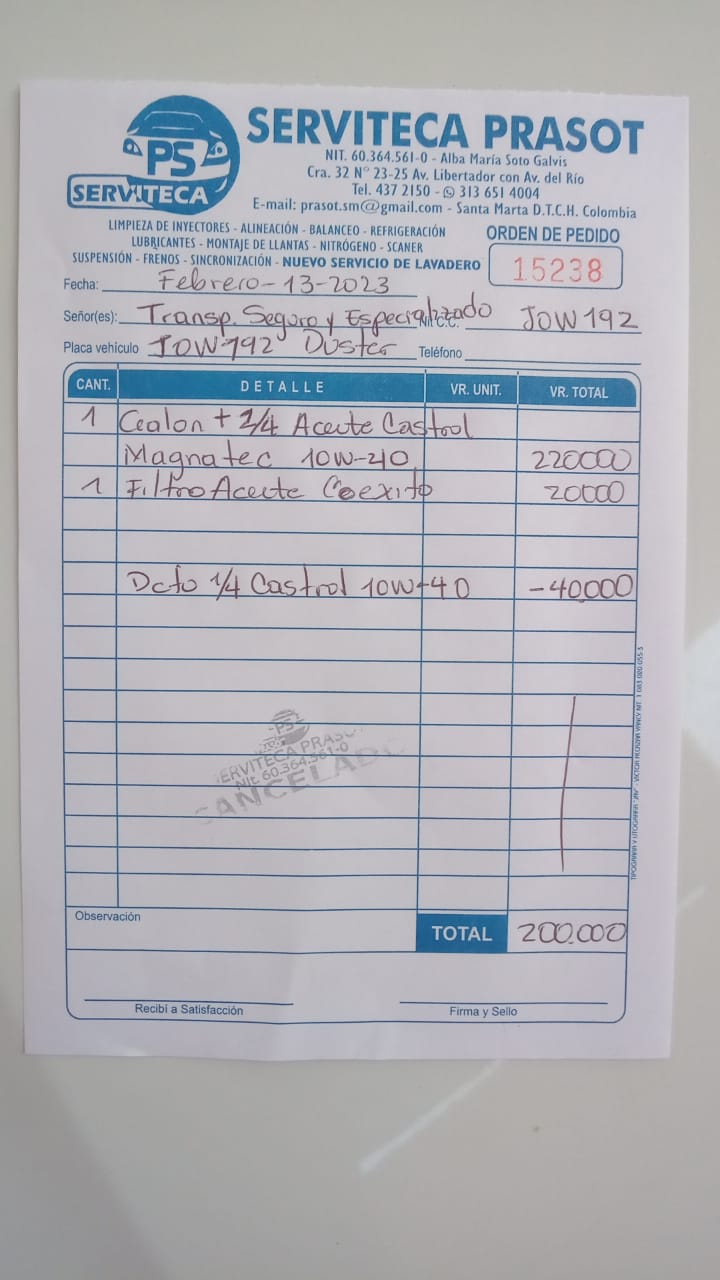 PS
SERVITECA
SERVITECA PRASOT
NIT. 60.364.561-0 - Alba María Soto Galvis
Cra. 32 N° 23-25 Av. Libertador con Av. del Río
Tel. 437 2150 - 313 651 4004
E-mail: prasot.sm@gmail.com - Santa Marta D.T.C.H. Colombia
LIMPIEZA DE INYECTORES - ALINEACIÓN - BALANCEO - REFRIGERACIÓN
LUBRICANTES - MONTAJE DE LLANTAS - NITRÓGENO - SCANER
SUSPENSIÓN - FRENOS - SINCRONIZACIÓN - NUEVO SERVICIO DE LAVADERO
ORDEN DE PEDIDO
15238
Fecha: Febrero-13-2023
Señor(es): Transp. Seguro y Especializado Nit C.C. JOW192
Placa vehiculo JOW192 Duster Teléfono
CANT. DETALLE VR. UNIT. VR. TOTAL
1 Cealon + 2/4 Aceite Castrol
Magnatec 10W-40 220000
1 Filtro Aceite Coexito 20000
Dcto 1/4 Castrol 10W-40 -40,000
PS
SERVITECA PRASOT
Nit. 60.364.561-0
CANCELADO
Observación
TOTAL 200.000
Recibí a Satisfacción Firma y Sello